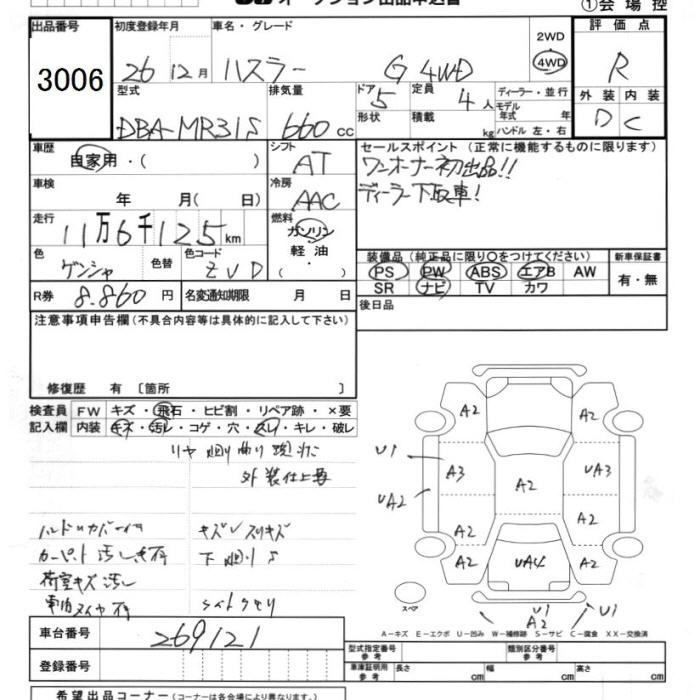 ①会場控
出品番号 初度登録年月 車名・グレード 2WD 評価点
3006 26 12月 ハスラー G 4WD 4WD R
型式 排気量 ドア 定員 ディーラー・並行 外装 内装
DBA-MR31S 660cc 5 4人 モデル年式 年 D C
形状 積載 kg ハンドル 左・右
車歴 自家用・( ) シフト AT セールスポイント (正常に機能するものに限ります)
ワンオーナー初出品!!
車検 年 月( 日) 冷房 AAC ディーラー下取車!
走行 11万6千125km 燃料 ガソリン・軽油・( )
色 ゲンシャ 色替 色コード ZVD
装備品 (純正品に限り○をつけてください) 新車保証書
PS PW ABS エアB AW 有・無
SR ナビ TV カワ
R券 8.860円 名変通知期限 月 日 後日品
注意事項申告欄 (不具合内容等は具体的に記入して下さい)
修復歴 有 〔箇所 〕
検査員 FW キズ・飛石・ヒビ割・リペア跡・×要
記入欄 内装 キズ・汚レ・コゲ・穴・スレ・キレ・破レ
外装仕上要
キズ
荷室キズ 汚レ
A2 A2
U1 A3 A2 UA3
UA2
A2 A2
A2 UA4 A2
スペア
U1 A2 U1
A-キズ E-エクボ U-凹み W-補修跡 S-サビ C-腐食 XX-交換済
車台番号 269121
登録番号
型式指定番号 参考 類別区分番号 参考
車庫証明用 参考 長さ cm 幅 cm 高さ cm
希望出品コーナー (コーナーは各会場により異なります。)